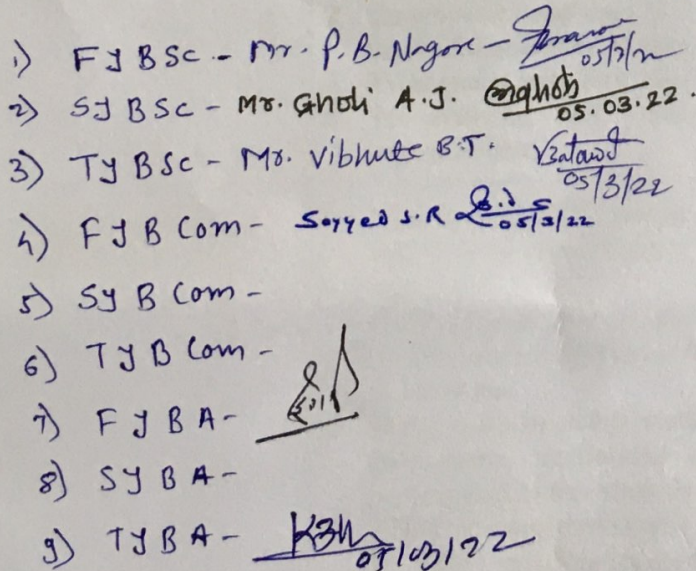 1) FYBSc - Mr. P.B. Nagore - 05/3/22
2) SYBSc - Mr. Gholi A.J. 05.03.22.
3) TYBSc - Mr. Vibhute B.T. 05/3/22
4) FYB Com - Sayyed S.R 05/3/22
5) SYB Com -
6) TYB Com -
7) FYBA -
8) SYBA -
9) TYBA - 05/03/22